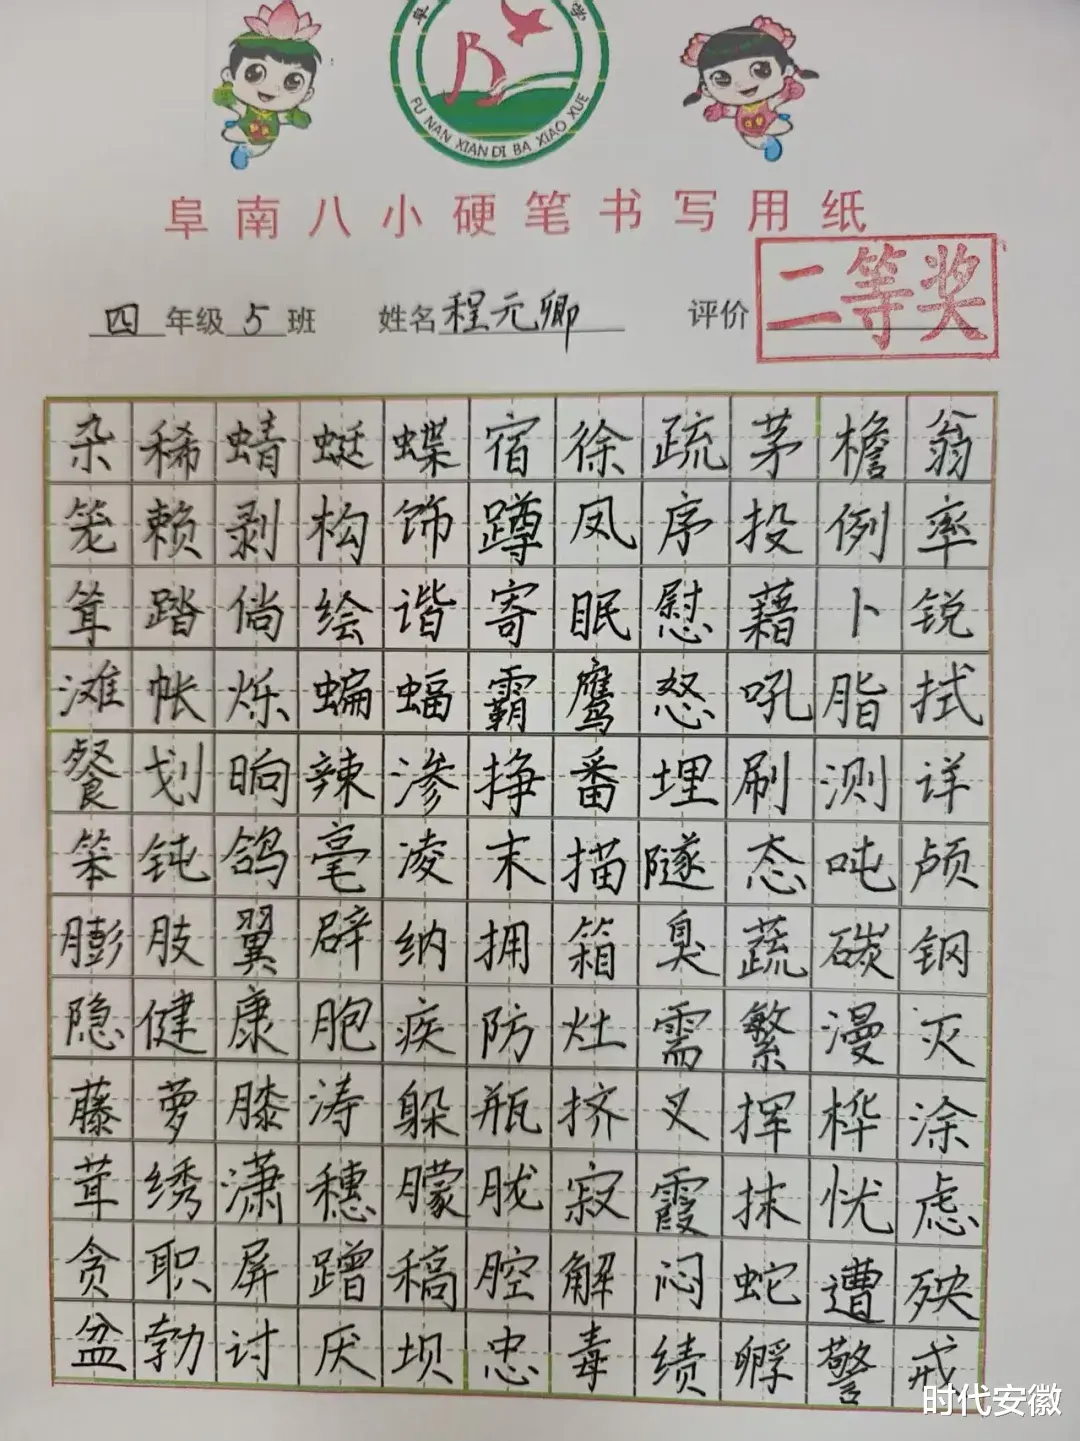 FU NAN XIAN DI BA XIAO XUE
阜南八小硬笔书写用纸
四年级5班 姓名程元卿 评价 二等奖
杂稀蜻蜓蝶宿徐疏茅檐翁
笼赖剥构饰蹲凤序投例率
耸踏倘绘谐寄眠慰藉卜锐
滩帐烁蝙蝠霸鹰怒吼脂拭
餐划晌辣渗挣番埋刷测详
笨钝鸽毫凌末描隧态吨颅
膨肢翼辟纳拥箱臭蔬碳钢
隐健康胞疾防灶需繁漫灭
藤萝膝涛躲瓶挤叉挥桦涂
茸绣潇穗朦胧寂霞抹忧虑
贪职屏蹭稿腔解闷蛇遭殃
盆勃讨厌坝忠毒绩孵警戒
时代安徽